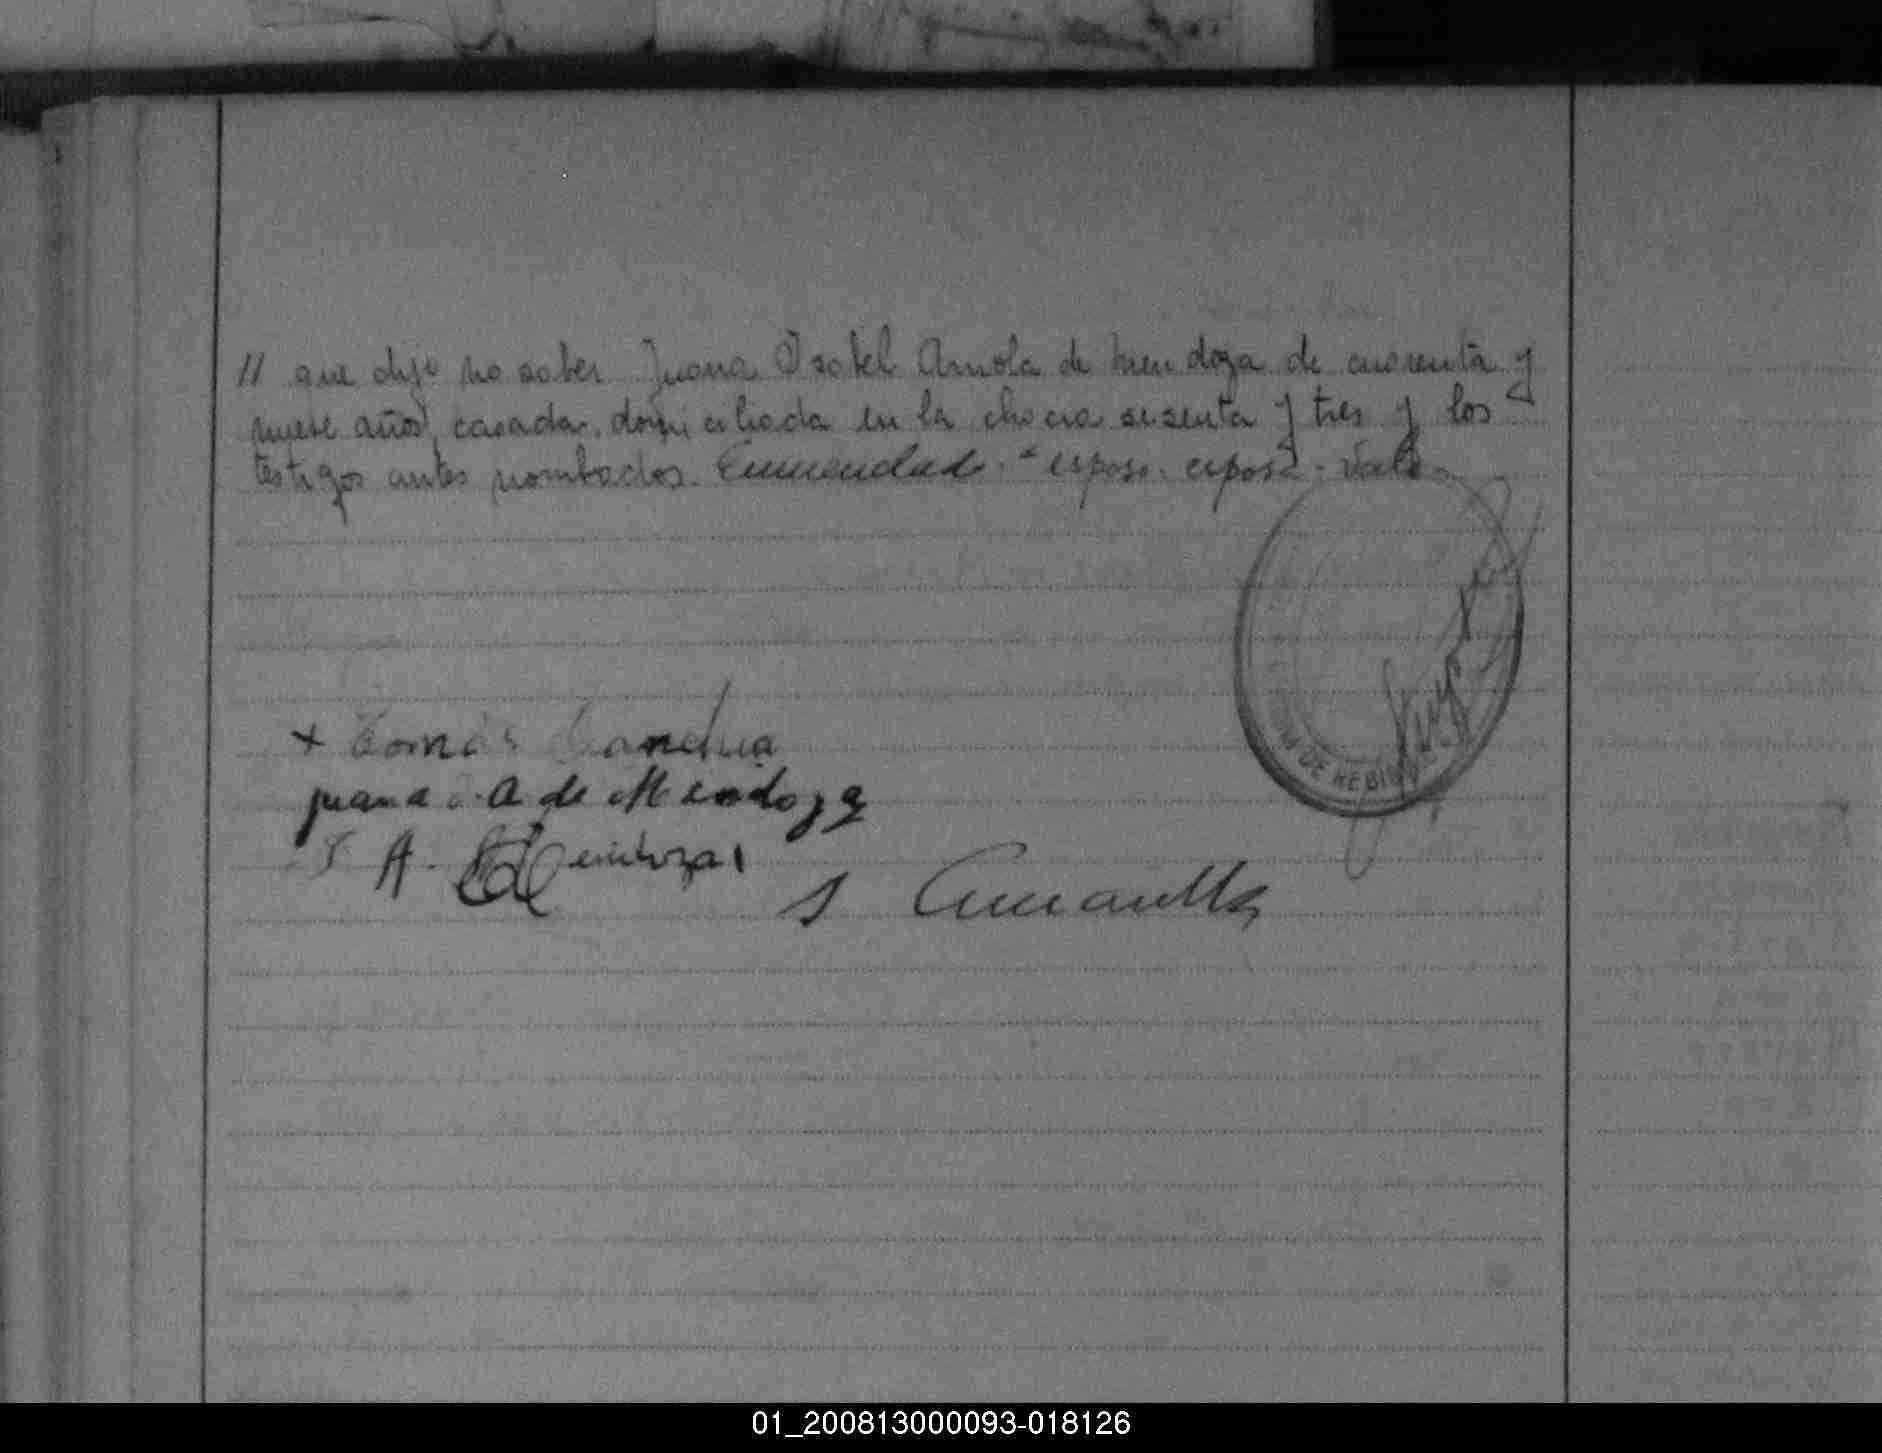 // que dijo no saber Juana Isabel Arriola de Mendoza de cuarenta y
nueve años, casada, domiciliada en la chacra sesenta y tres y los
testigos antes nombados. Enmendado: "esposo. esposa. Vale
+ Tomás
juana I. A de Mendoza
A. Mendoza
S
DE
01_200813000093-018126